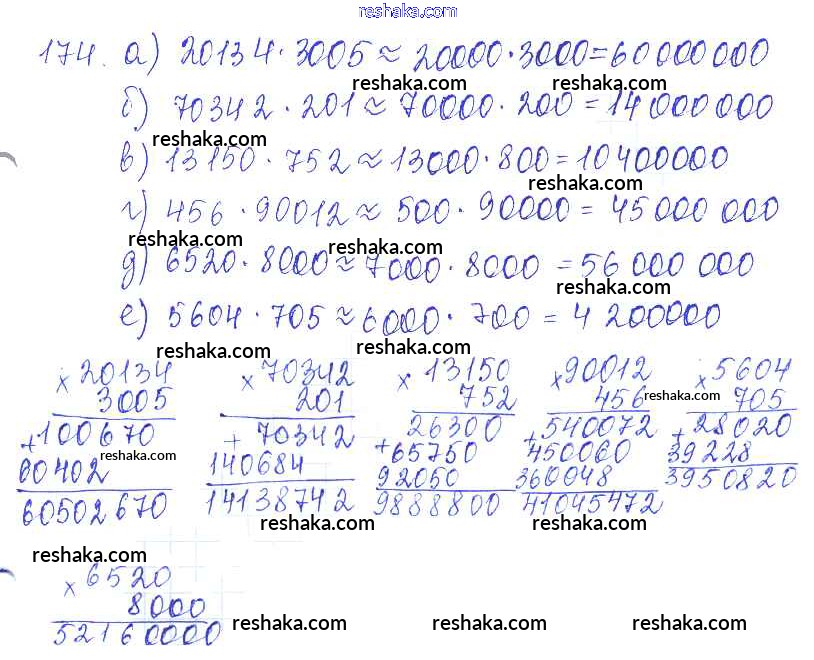 reshaka.com
174. а) 20134·3005≈20000·3000=60000000
reshaka.com reshaka.com
б) 70342·201≈70000·200=14000000
reshaka.com
в) 13150·752≈13000·800=10400000
reshaka.com
г) 456·90012≈500·90000=45000000
reshaka.com reshaka.com
д) 6520·8000≈7000·8000=56000000
reshaka.com
е) 5604·705≈6000·700=4200000
reshaka.com reshaka.com
×20134 ×70342 ×13150 ×90012 ×5604
3005 201 752 456 705
reshaka.com
+100670 +70342 26300 +540072 +28020
60402 140684 +65750 450060 39228
reshaka.com reshaka.com
92050 360048
60502670 14138742 9888800 41045472 3950820
reshaka.com reshaka.com
reshaka.com
×6520
8000
52160000
reshaka.com reshaka.com reshaka.com